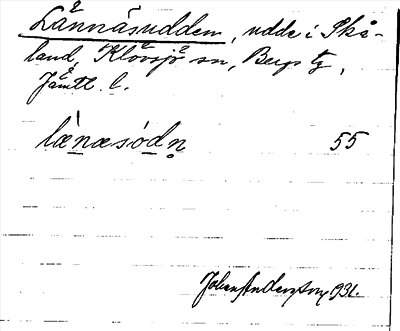 Lännäsudden, udde i Skå-
land, Klövsjö sn, Bergs tg,
Jämtl. l.
lænæsódn 55
Johan Anderson 1931.